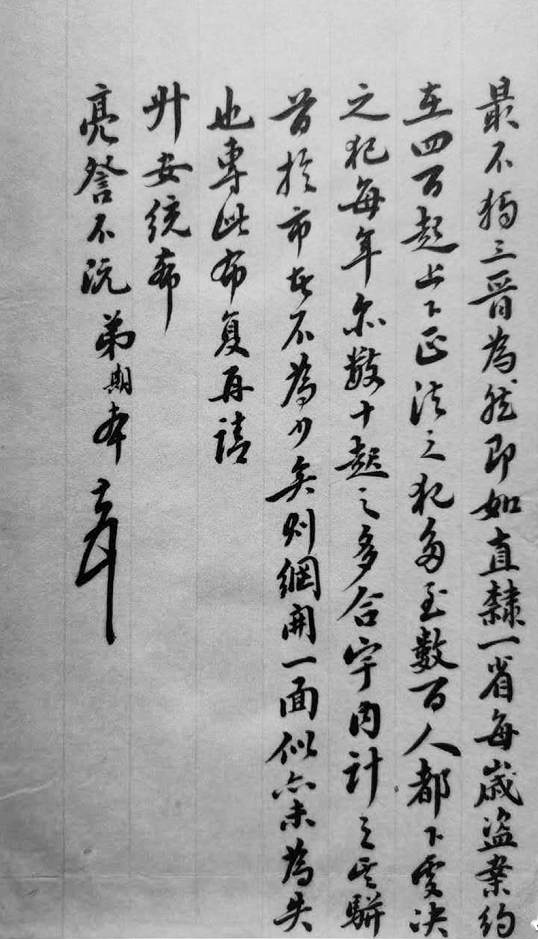 最不獨三晉為然即如直隸一省每歲盜案約
在四百起上下正法之犯多至數百人都下處決
之犯每年亦數十起之多合宇內計之其駢
首於市者不為少矣則網開一面似亦未為失
也專此布复再請
升安統希
亮詧不沅
弟期